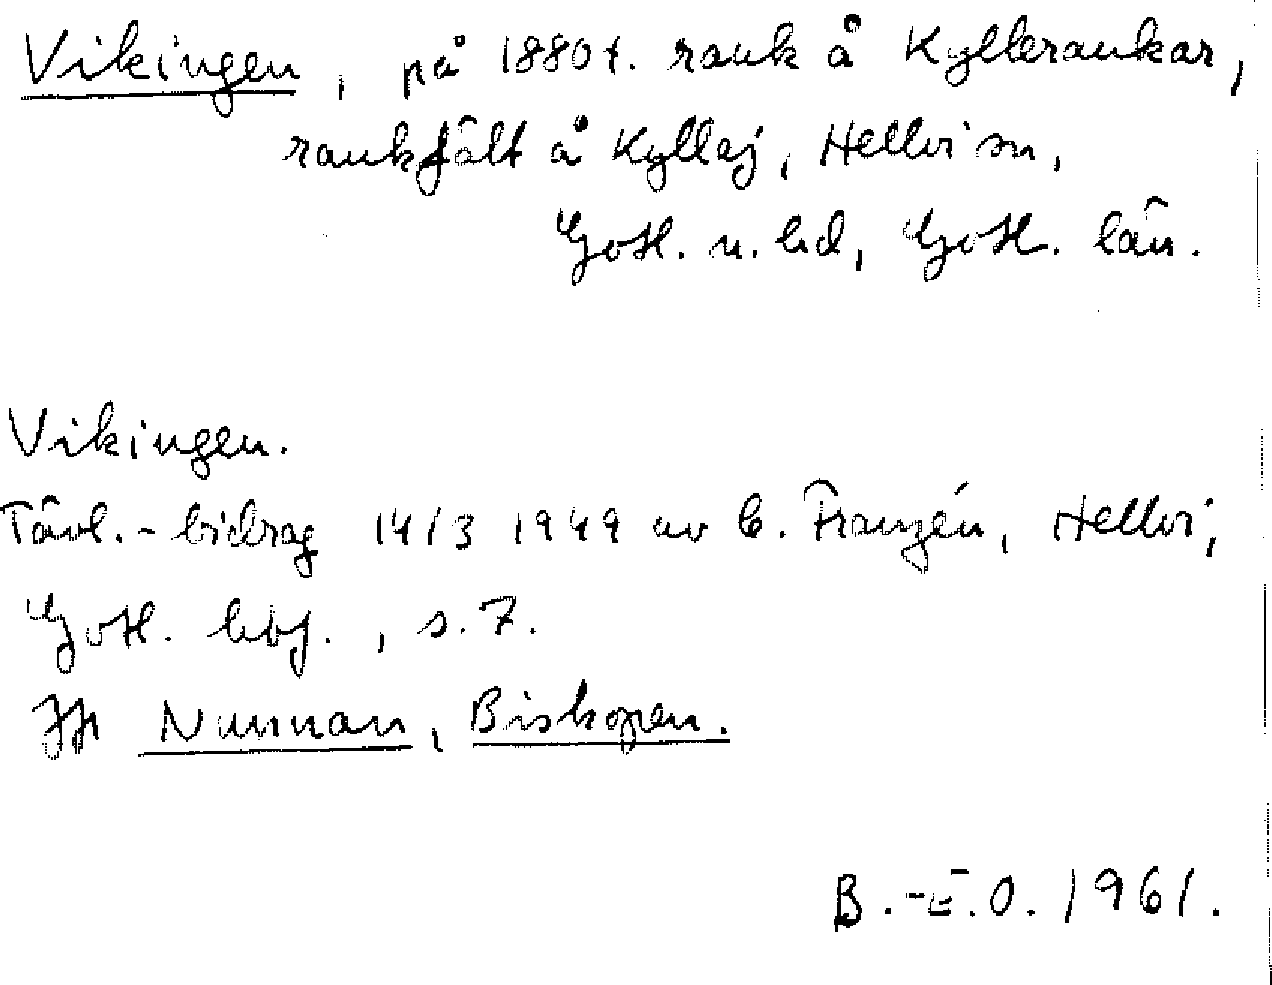 Vikingen, på 1880t. rauk å Kylleraukar,
raukfält å Kyllaj, Hellvi sn,
Gotl. n. hd, Gotl. län.
Vikingen.
Tävl.-bidrag 14/3 1949 av C. Franzén, Hellvi,
Gotl. hbf., s. 7.
Jfr Nunnan, Biskopen.
B.-E.O. 1961.